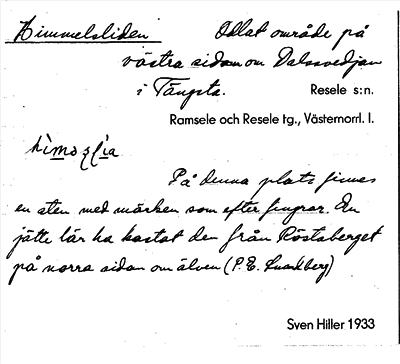 Himmelsliden Odlat område på
västra sidan om Dalasvedjan
i Tängsta. Resele s:n.
Ramsele och Resele tg., Västernorrl. l.
På denna plats finnes
en sten med märken som efter fingrar. En
jätte lär ha kastat den från Röstaberget
på norra sidan om älven (P. E. Lundberg)
Sven Hiller 1933